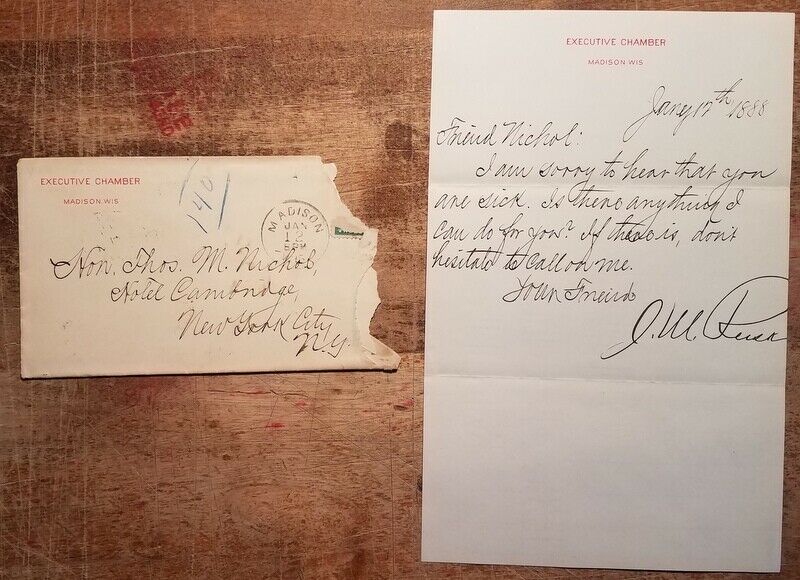 EXECUTIVE CHAMBER
MADISON WIS
140
MADISON
JAN
12
5 PM
Hon. Thos. M. Nichol,
Hotel Cambridge,
New York City
N.Y.
EXECUTIVE CHAMBER
MADISON WIS
Jany 12th 1888
Friend Nichol:
I am sorry to hear that you
are sick. Is there anything I
can do for you? If there is, don't
hesitate to call on me.
Your Friend
J. M. Rusk